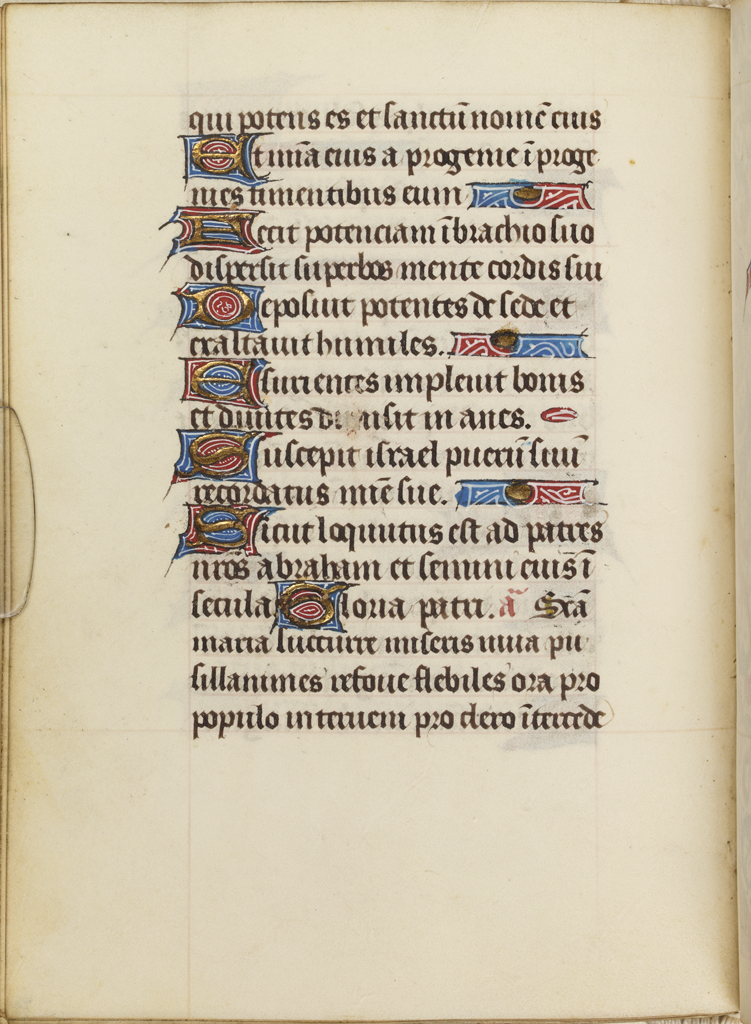 qui potens es et sanctū nomē eius
Et mīa eius a progenie ī proge
nies timentibus eum
Fecit potenciam ī brachio suo
dispersit superbos mente cordis sui
Deposuit potentes de sede et
exaltavit humiles.
Esurientes impleuit bonis
et diuites di isit in anes.
Suscepit israel puerū suū
recordatus mīe sue.
Sicut loquutus est ad patres
nr̄os abraham et semini eius ī
secula Gloria patri. ā Scā
maria succurre miseris iuua pu
sillanimes refoue flebiles ora pro
populo interueni pro clero ītercede